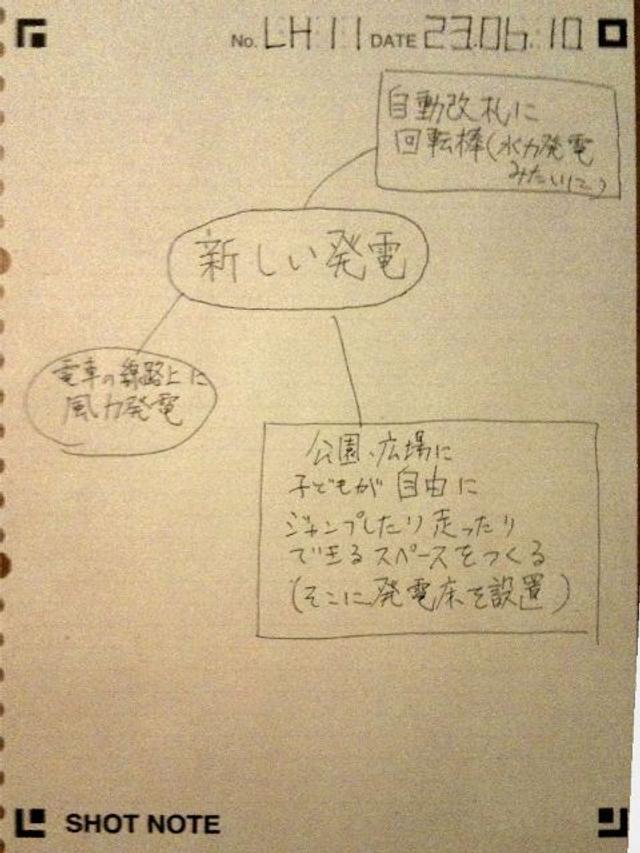 No. LH11 DATE 23.06.10
自動改札に
回転棒(水力発電
みたいに)
新しい発電
電車の線路上に
風力発電
公園、広場に
子どもが自由に
ジャンプしたり走ったり
できるスペースをつくる
(そこに発電床を設置)
SHOT NOTE